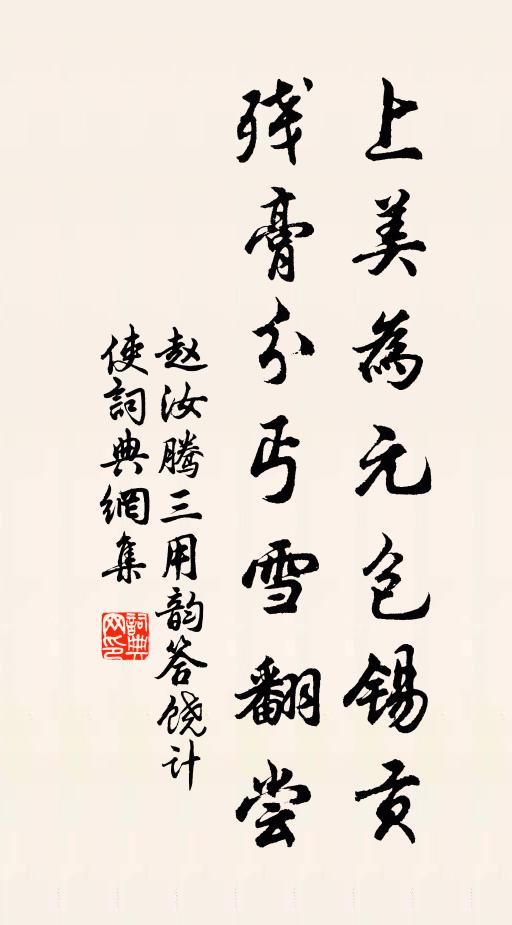 上美為元包锡贡
残膏分丐雪翻尝
赵汝腾三用韵答饶计
使詞典網集
詞典网印